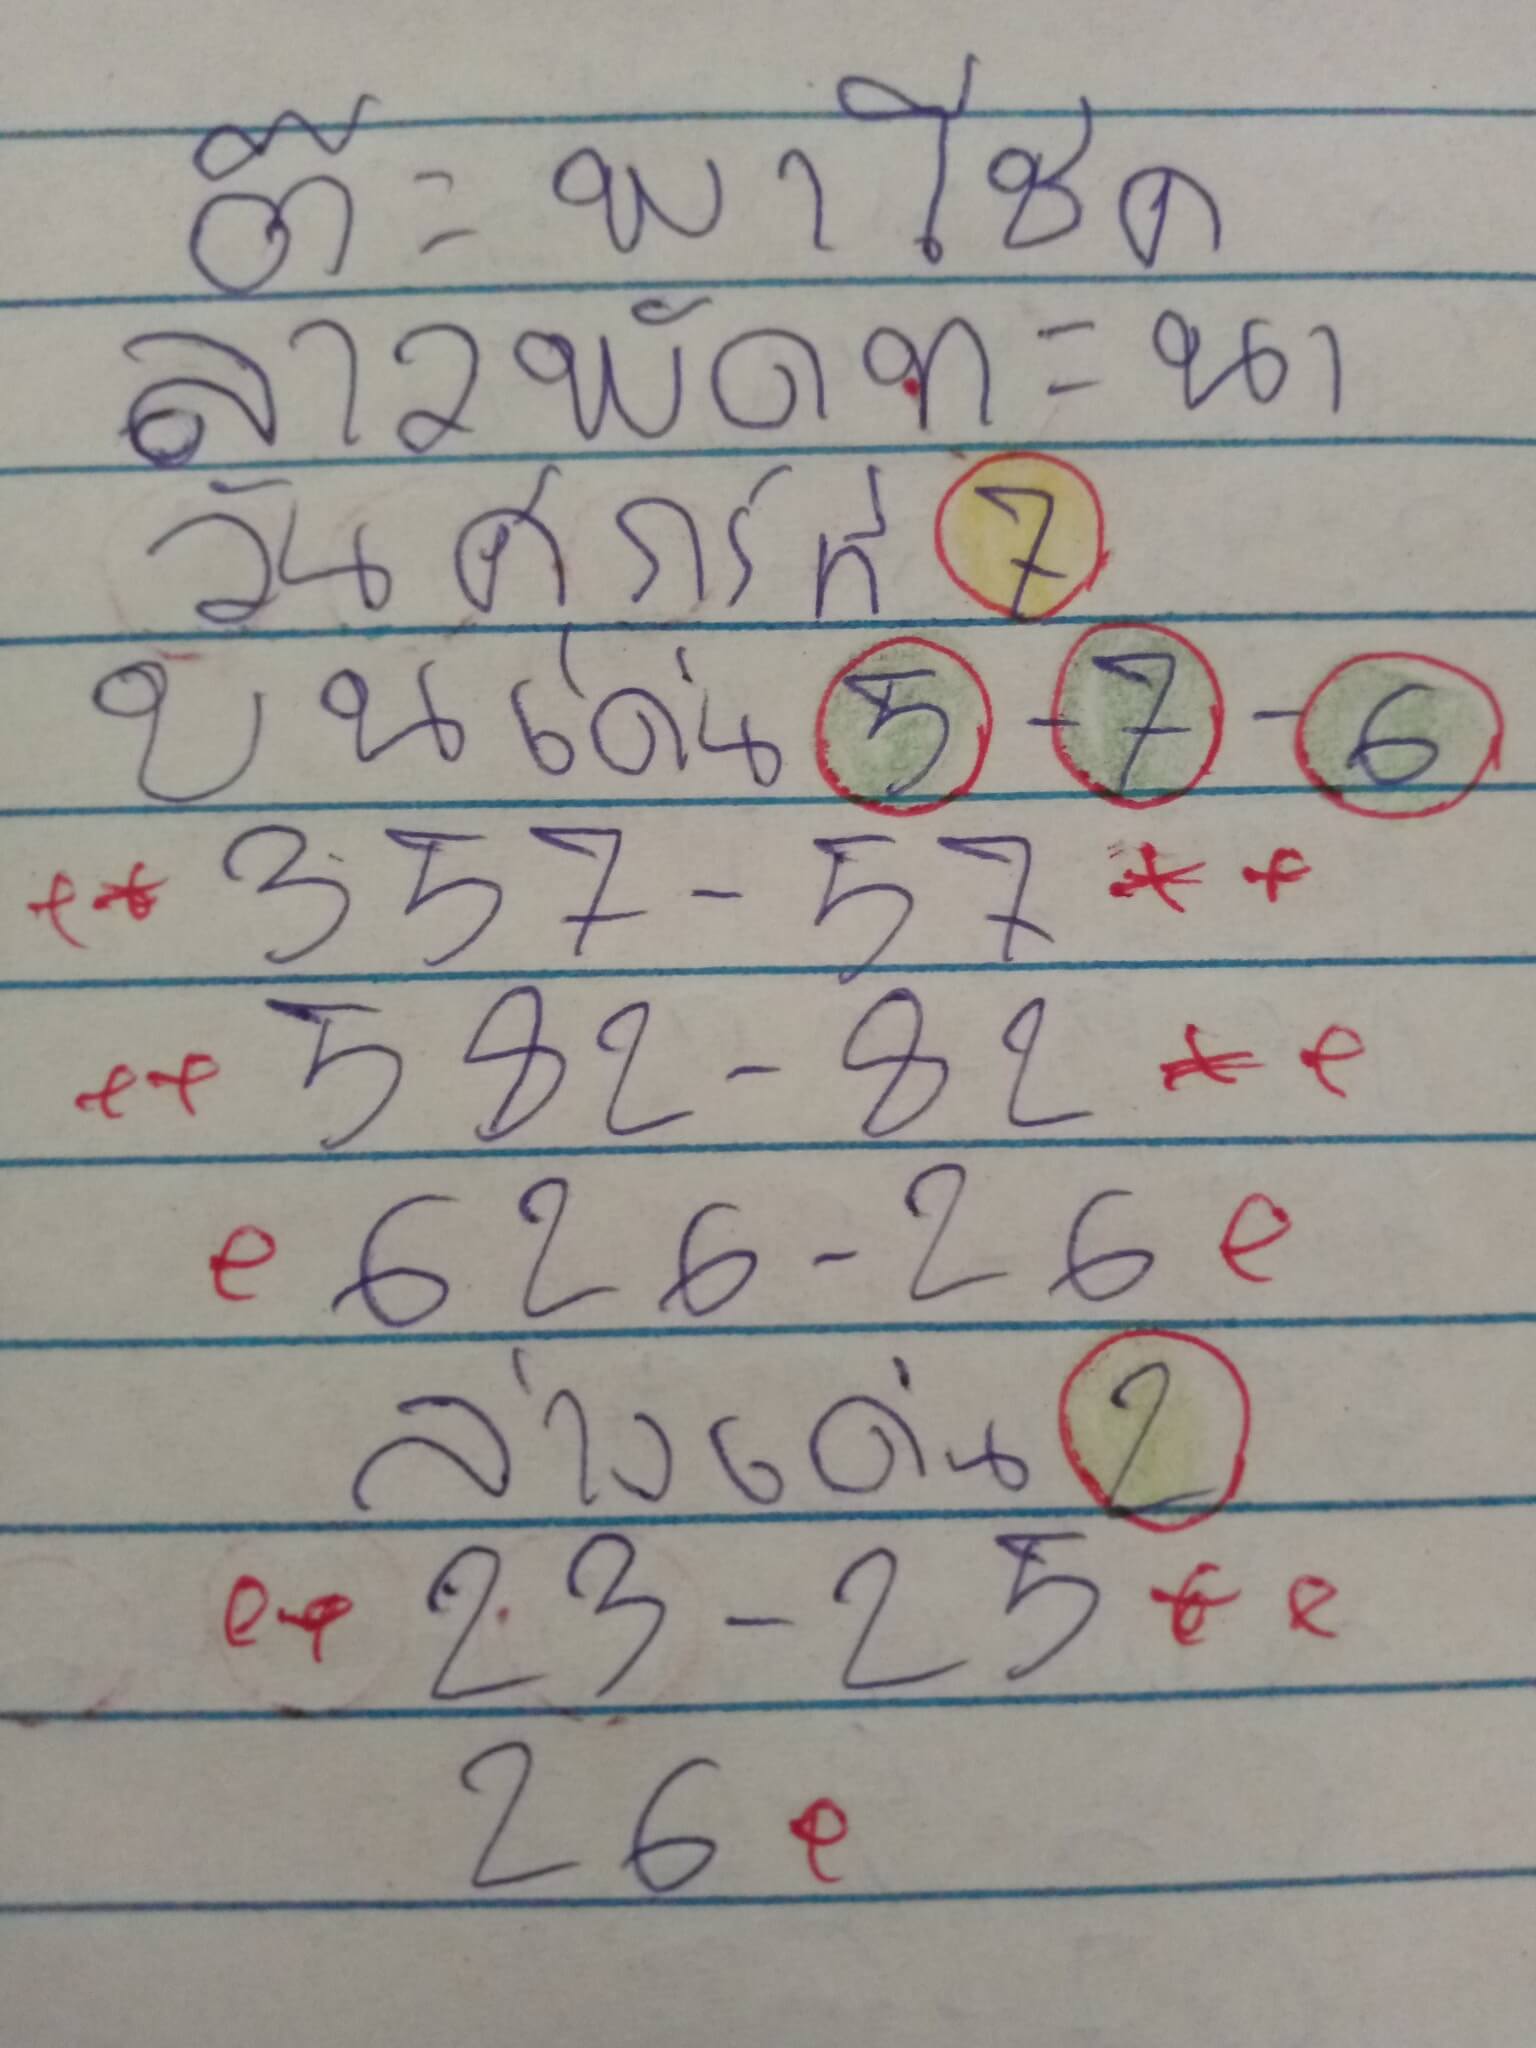 ต๊ะพาโชค
ลาวพัดทะนา
วันศกร์ที่ 7
บนเด่น 5-7-6
** 357-57 **
** 582-82 **
* 626-26 *
ล่างเด่น 2
** 23-25 **
26 *